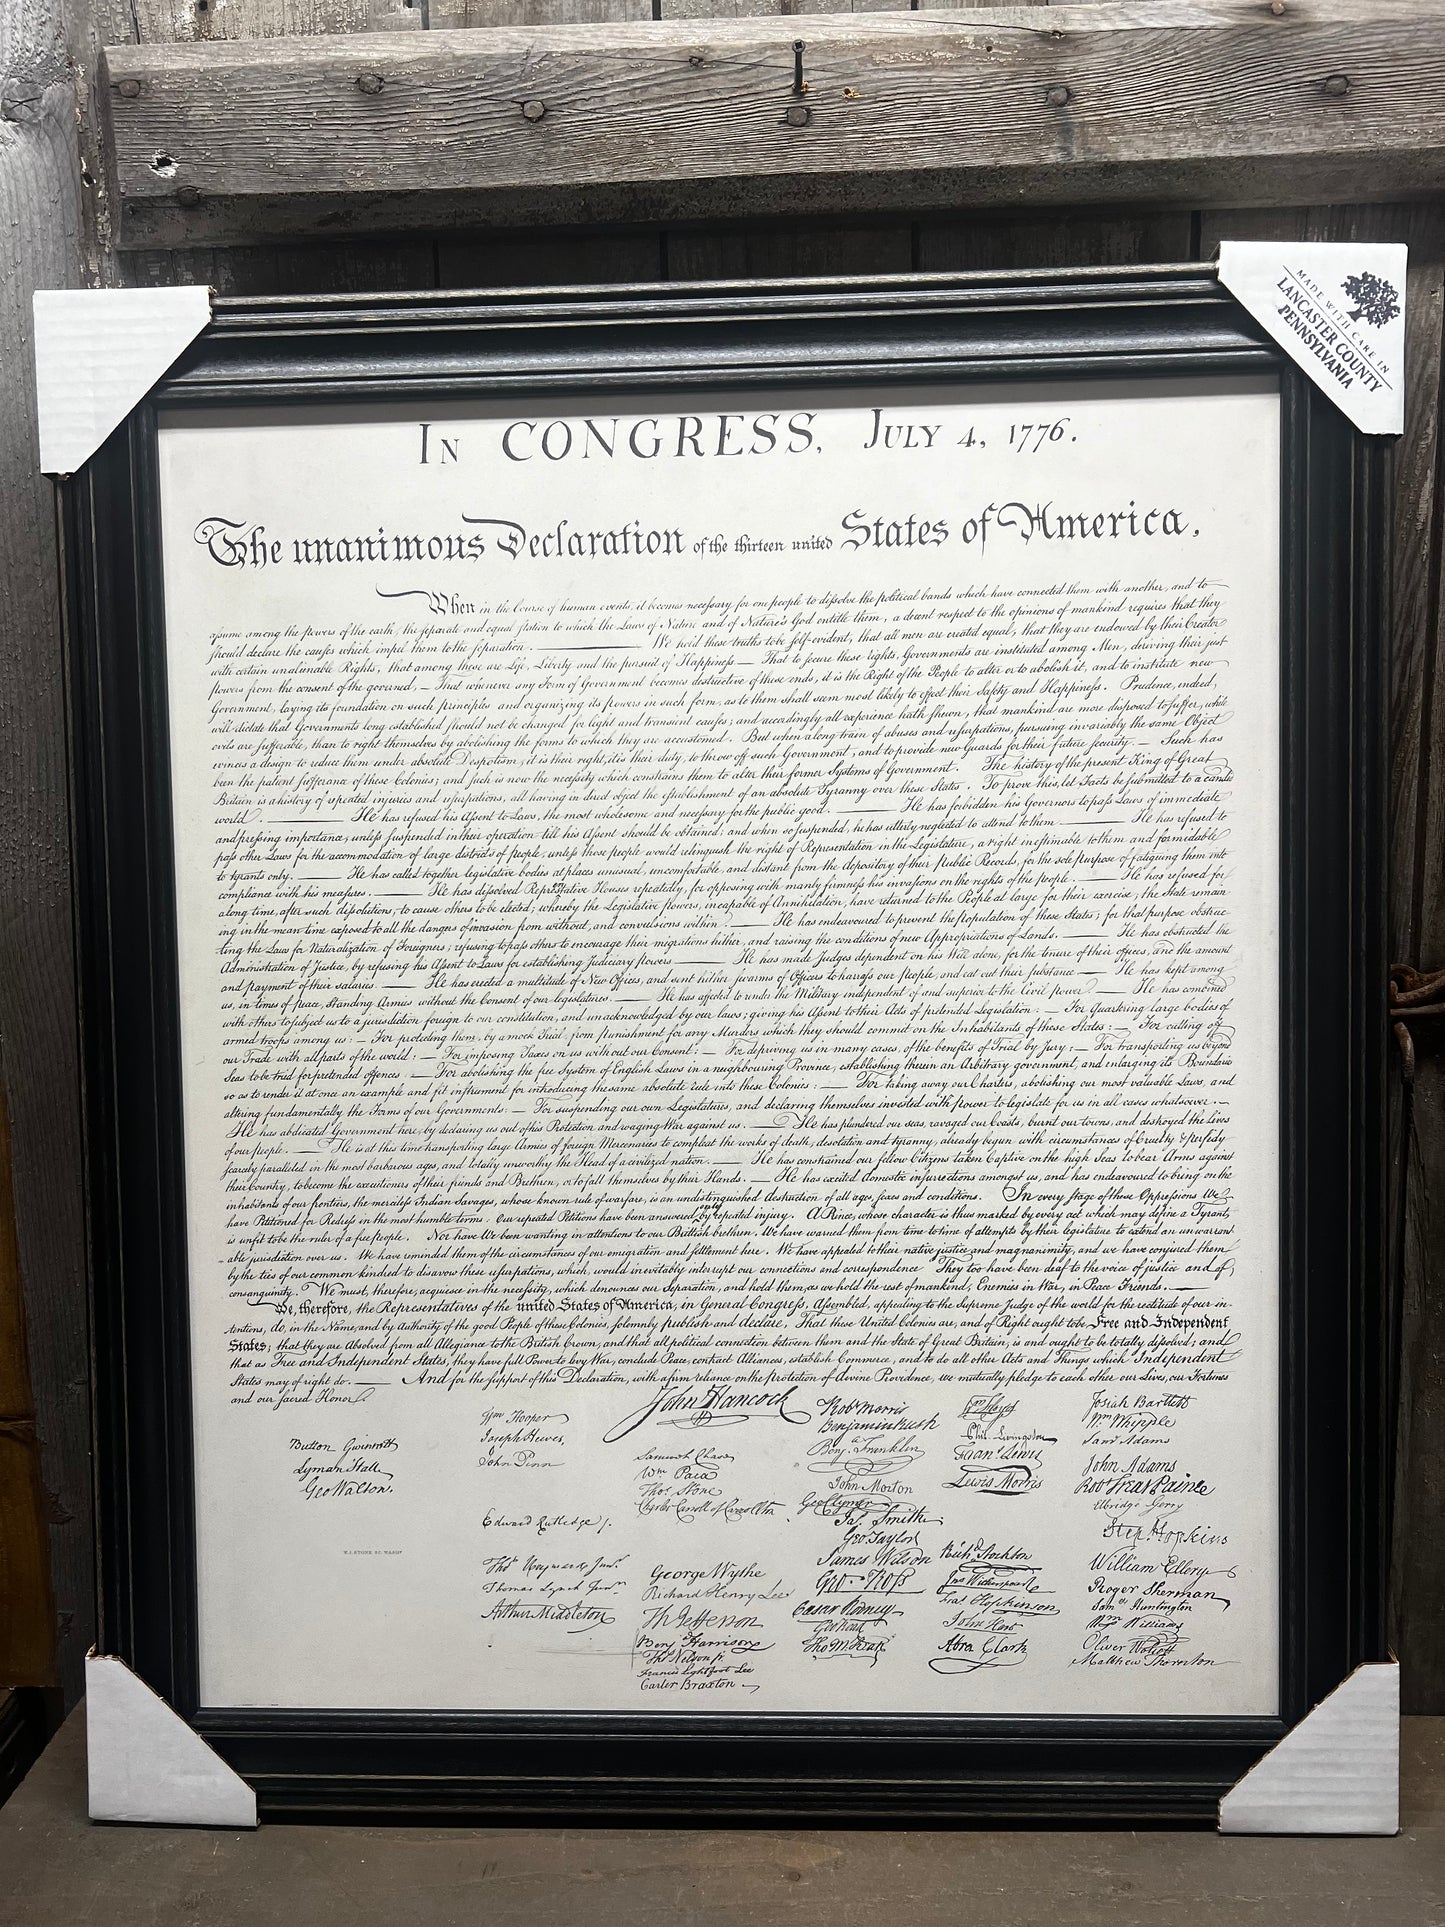 MADE WITH CARE IN
LANCASTER COUNTY
PENNSYLVANIA
IN CONGRESS, JULY 4, 1776.
The unanimous Declaration of the thirteen united States of America,
When in the Course of human events, it becomes necessary for one people to dissolve the political bands which have connected them with another, and to
assume among the powers of the earth, the separate and equal station to which the Laws of Nature and of Nature's God entitle them, a decent respect to the opinions of mankind requires that they
should declare the causes which impel them to the separation. ——— We hold these truths to be self-evident, that all men are created equal, that they are endowed by their Creator
with certain unalienable Rights, that among these are Life, Liberty and the pursuit of Happiness — That to secure these rights, Governments are instituted among Men, deriving their just
powers from the consent of the governed, — That whenever any Form of Government becomes destructive of these ends, it is the Right of the People to alter or to abolish it, and to institute new
Government, laying its foundation on such principles and organizing its powers in such form, as to them shall seem most likely to effect their Safety and Happiness. Prudence, indeed,
will dictate that Governments long established should not be changed for light and transient causes; and accordingly all experience hath shewn, that mankind are more disposed to suffer, while
evils are sufferable, than to right themselves by abolishing the forms to which they are accustomed. But when a long train of abuses and usurpations, pursuing invariably the same Object
evinces a design to reduce them under absolute Despotism, it is their right, it is their duty, to throw off such Government, and to provide new Guards for their future security. — Such has
been the patient sufferance of these Colonies; and such is now the necessity which constrains them to alter their former Systems of Government. The history of the present King of Great
Britain is a history of repeated injuries and usurpations, all having in direct object the establishment of an absolute Tyranny over these States. To prove this, let Facts be submitted to a candid
world. ——— He has refused his Assent to Laws, the most wholesome and necessary for the public good. ——— He has forbidden his Governors to pass Laws of immediate
and pressing importance, unless suspended in their operation till his Assent should be obtained; and when so suspended, he has utterly neglected to attend to them. ——— He has refused to
pass other Laws for the accommodation of large districts of people, unless those people would relinquish the right of Representation in the Legislature, a right inestimable to them and formidable
to tyrants only. ——— He has called together legislative bodies at places unusual, uncomfortable, and distant from the depository of their public Records, for the sole purpose of fatiguing them into
compliance with his measures. ——— He has dissolved Representative Houses repeatedly, for opposing with manly firmness his invasions on the rights of the people. ——— He has refused for
a long time, after such dissolutions, to cause others to be elected; whereby the Legislative powers, incapable of Annihilation, have returned to the People at large for their exercise; the State remain
ing in the mean time exposed to all the dangers of invasion from without, and convulsions within. ——— He has endeavoured to prevent the population of these States; for that purpose obstruc
ting the Laws for Naturalization of Foreigners; refusing to pass others to encourage their migrations hither, and raising the conditions of new Appropriations of Lands. ——— He has obstructed the
Administration of Justice, by refusing his Assent to Laws for establishing Judiciary powers ——— He has made Judges dependent on his Will alone, for the tenure of their offices, and the amount
and payment of their salaries. ——— He has erected a multitude of New Offices, and sent hither swarms of Officers to harrass our people, and eat out their substance ——— He has kept among
us, in times of peace, Standing Armies without the Consent of our legislatures. ——— He has affected to render the Military independent of and superior to the Civil power ——— He has combined
with others to subject us to a jurisdiction foreign to our constitution, and unacknowledged by our laws; giving his Assent to their Acts of pretended Legislation: — For Quartering large bodies of
armed troops among us: — For protecting them, by a mock Trial, from punishment for any Murders which they should commit on the Inhabitants of these States: — For cutting off
our Trade with all parts of the world: — For imposing Taxes on us without our Consent: — For depriving us in many cases, of the benefits of Trial by Jury: — For transporting us beyond
Seas to be tried for pretended offences — For abolishing the free System of English Laws in a neighbouring Province, establishing therein an Arbitrary government, and enlarging its Boundaries
so as to render it at once an example and fit instrument for introducing the same absolute rule into these Colonies: — For taking away our Charters, abolishing our most valuable Laws, and
altering fundamentally the Forms of our Governments: — For suspending our own Legislatures, and declaring themselves invested with power to legislate for us in all cases whatsoever. —
He has abdicated Government here, by declaring us out of his Protection and waging War against us. ——— He has plundered our seas, ravaged our Coasts, burnt our towns, and destroyed the Lives
of our people. ——— He is at this time transporting large Armies of foreign Mercenaries to compleat the works of death, desolation and tyranny, already begun with circumstances of Cruelty & perfidy
scarcely paralleled in the most barbarous ages, and totally unworthy the Head of a civilized nation. ——— He has constrained our fellow Citizens taken Captive on the high Seas to bear Arms against
their Country, to become the executioners of their friends and Brethren, or to fall themselves by their Hands. ——— He has excited domestic insurrections amongst us, and has endeavoured to bring on the
inhabitants of our frontiers, the merciless Indian Savages, whose known rule of warfare, is an undistinguished destruction of all ages, sexes and conditions. In every stage of these Oppressions We
have Petitioned for Redress in the most humble terms: Our repeated Petitions have been answered only by repeated injury. A Prince, whose character is thus marked by every act which may define a Tyrant,
is unfit to be the ruler of a free people. Nor have We been wanting in attentions to our Brittish brethren. We have warned them from time to time of attempts by their legislature to extend an unwarrant
able jurisdiction over us. We have reminded them of the circumstances of our emigration and settlement here. We have appealed to their native justice and magnanimity, and we have conjured them
by the ties of our common kindred to disavow these usurpations, which, would inevitably interrupt our connections and correspondence They too have been deaf to the voice of justice and of
consanguinity. We must, therefore, acquiesce in the necessity, which denounces our Separation, and hold them, as we hold the rest of mankind, Enemies in War, in Peace Friends. ———
We, therefore, the Representatives of the united States of America, in General Congress, Assembled, appealing to the Supreme Judge of the world for the rectitude of our in-
tentions, do, in the Name, and by Authority of the good People of these Colonies, solemnly publish and declare, That these United Colonies are, and of Right ought to be Free and Independent
States; that they are Absolved from all Allegiance to the British Crown, and that all political connection between them and the State of Great Britain, is and ought to be totally dissolved; and
that as Free and Independent States, they have full Power to levy War, conclude Peace, contract Alliances, establish Commerce, and to do all other Acts and Things which Independent
States may of right do. ——— And for the support of this Declaration, with a firm reliance on the protection of divine Providence, we mutually pledge to each other our Lives, our Fortunes
and our sacred Honor.
Button Gwinnett
Lyman Hall
Geo Walton.
Wm Hooper
Joseph Hewes,
John Penn
Edward Rutledge /.
Thos Heyward Junr.
Thomas Lynch Junr.
Arthur Middleton
John Hancock
Samuel Chase
Wm Paca
Thos Stone
Charles Carroll of Carrollton
George Wythe
Richard Henry Lee
Th Jefferson
Benj Harrison
Thos Nelson jr.
Francis Lightfoot Lee
Carter Braxton
Robt Morris
Benjamin Rush
Benj. Franklin
John Morton
Geo Clymer
Jas. Smith
Geo. Taylor
James Wilson
Geo. Ross
Caesar Rodney
Geo Read
Tho M:Kean
Wm Floyd
Phil. Livingston
Frans. Lewis
Lewis Morris
Richd. Stockton
Jno Witherspoon
Fras. Hopkinson
John Hart
Abra Clark
Josiah Bartlett
Wm Whipple
Saml Adams
John Adams
Robt Treat Paine
Elbridge Gerry
Step. Hopkins
William Ellery
Roger Sherman
Saml Huntington
Wm Williams
Oliver Wolcott
Matthew Thornton
W. J. STONE SC. WASHN